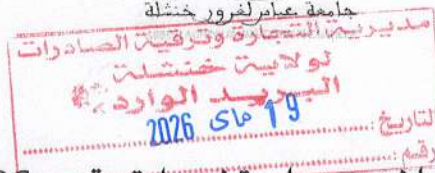 جامعة عباس لغرور خنشلة
مديرية التجارة وترقية الصادرات
لولاية خنشلة
البريد الوارد
19 ماي 2026
التاريخ:
رقم: